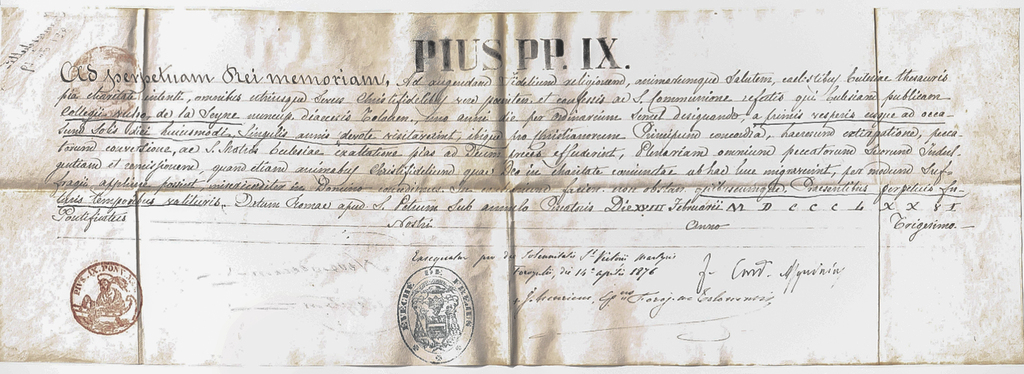 PIUS PP. IX.
Ad perpetuam Rei memoriam. Ad augendam Fidelium religionem, animarumque Salutem, caelestibus Ecclesiae thesauris
pia charitate intenti, omnibus utriusque Sexus Christifidelibus vere poenitent. et confessis ac S. Communione refectis qui Ecclesiam publicam
de la Seyne nuncup. dioecesis Tolonen. uno anni die per Ordinarium Semel designando a primis vesperis usque ad occa-
sum Solis diei huiusmodi Singulis annis devote visitaverint, ibique pro Christianorum Principum concordia, haeresum extirpatione, pecca-
torum conversione, ac S. Matris Ecclesiae exaltatione pias ad Deum preces effuderint, Plenariam omnium peccatorum Suorum Indul-
gentiam et remissionem, quam etiam animabus Christifidelium quae Deo in charitate coniunctae ab hac luce migraverint, per modum Suf-
fragii applicare possint misericorditer in Domino concedimus. In contrarium facien. non obstan. quibuscumque. Praesentibus perpetuis fu-
turis temporibus valituris. Datum Romae apud S. Petrum Sub annulo Piscatoris Die XVIII Februarii M D C C C L X X V I
Pontificatus Nostri Anno Trigesimo.
die 14 1876
PIUS. IX. PONT.
EVECHE DE FREJUS